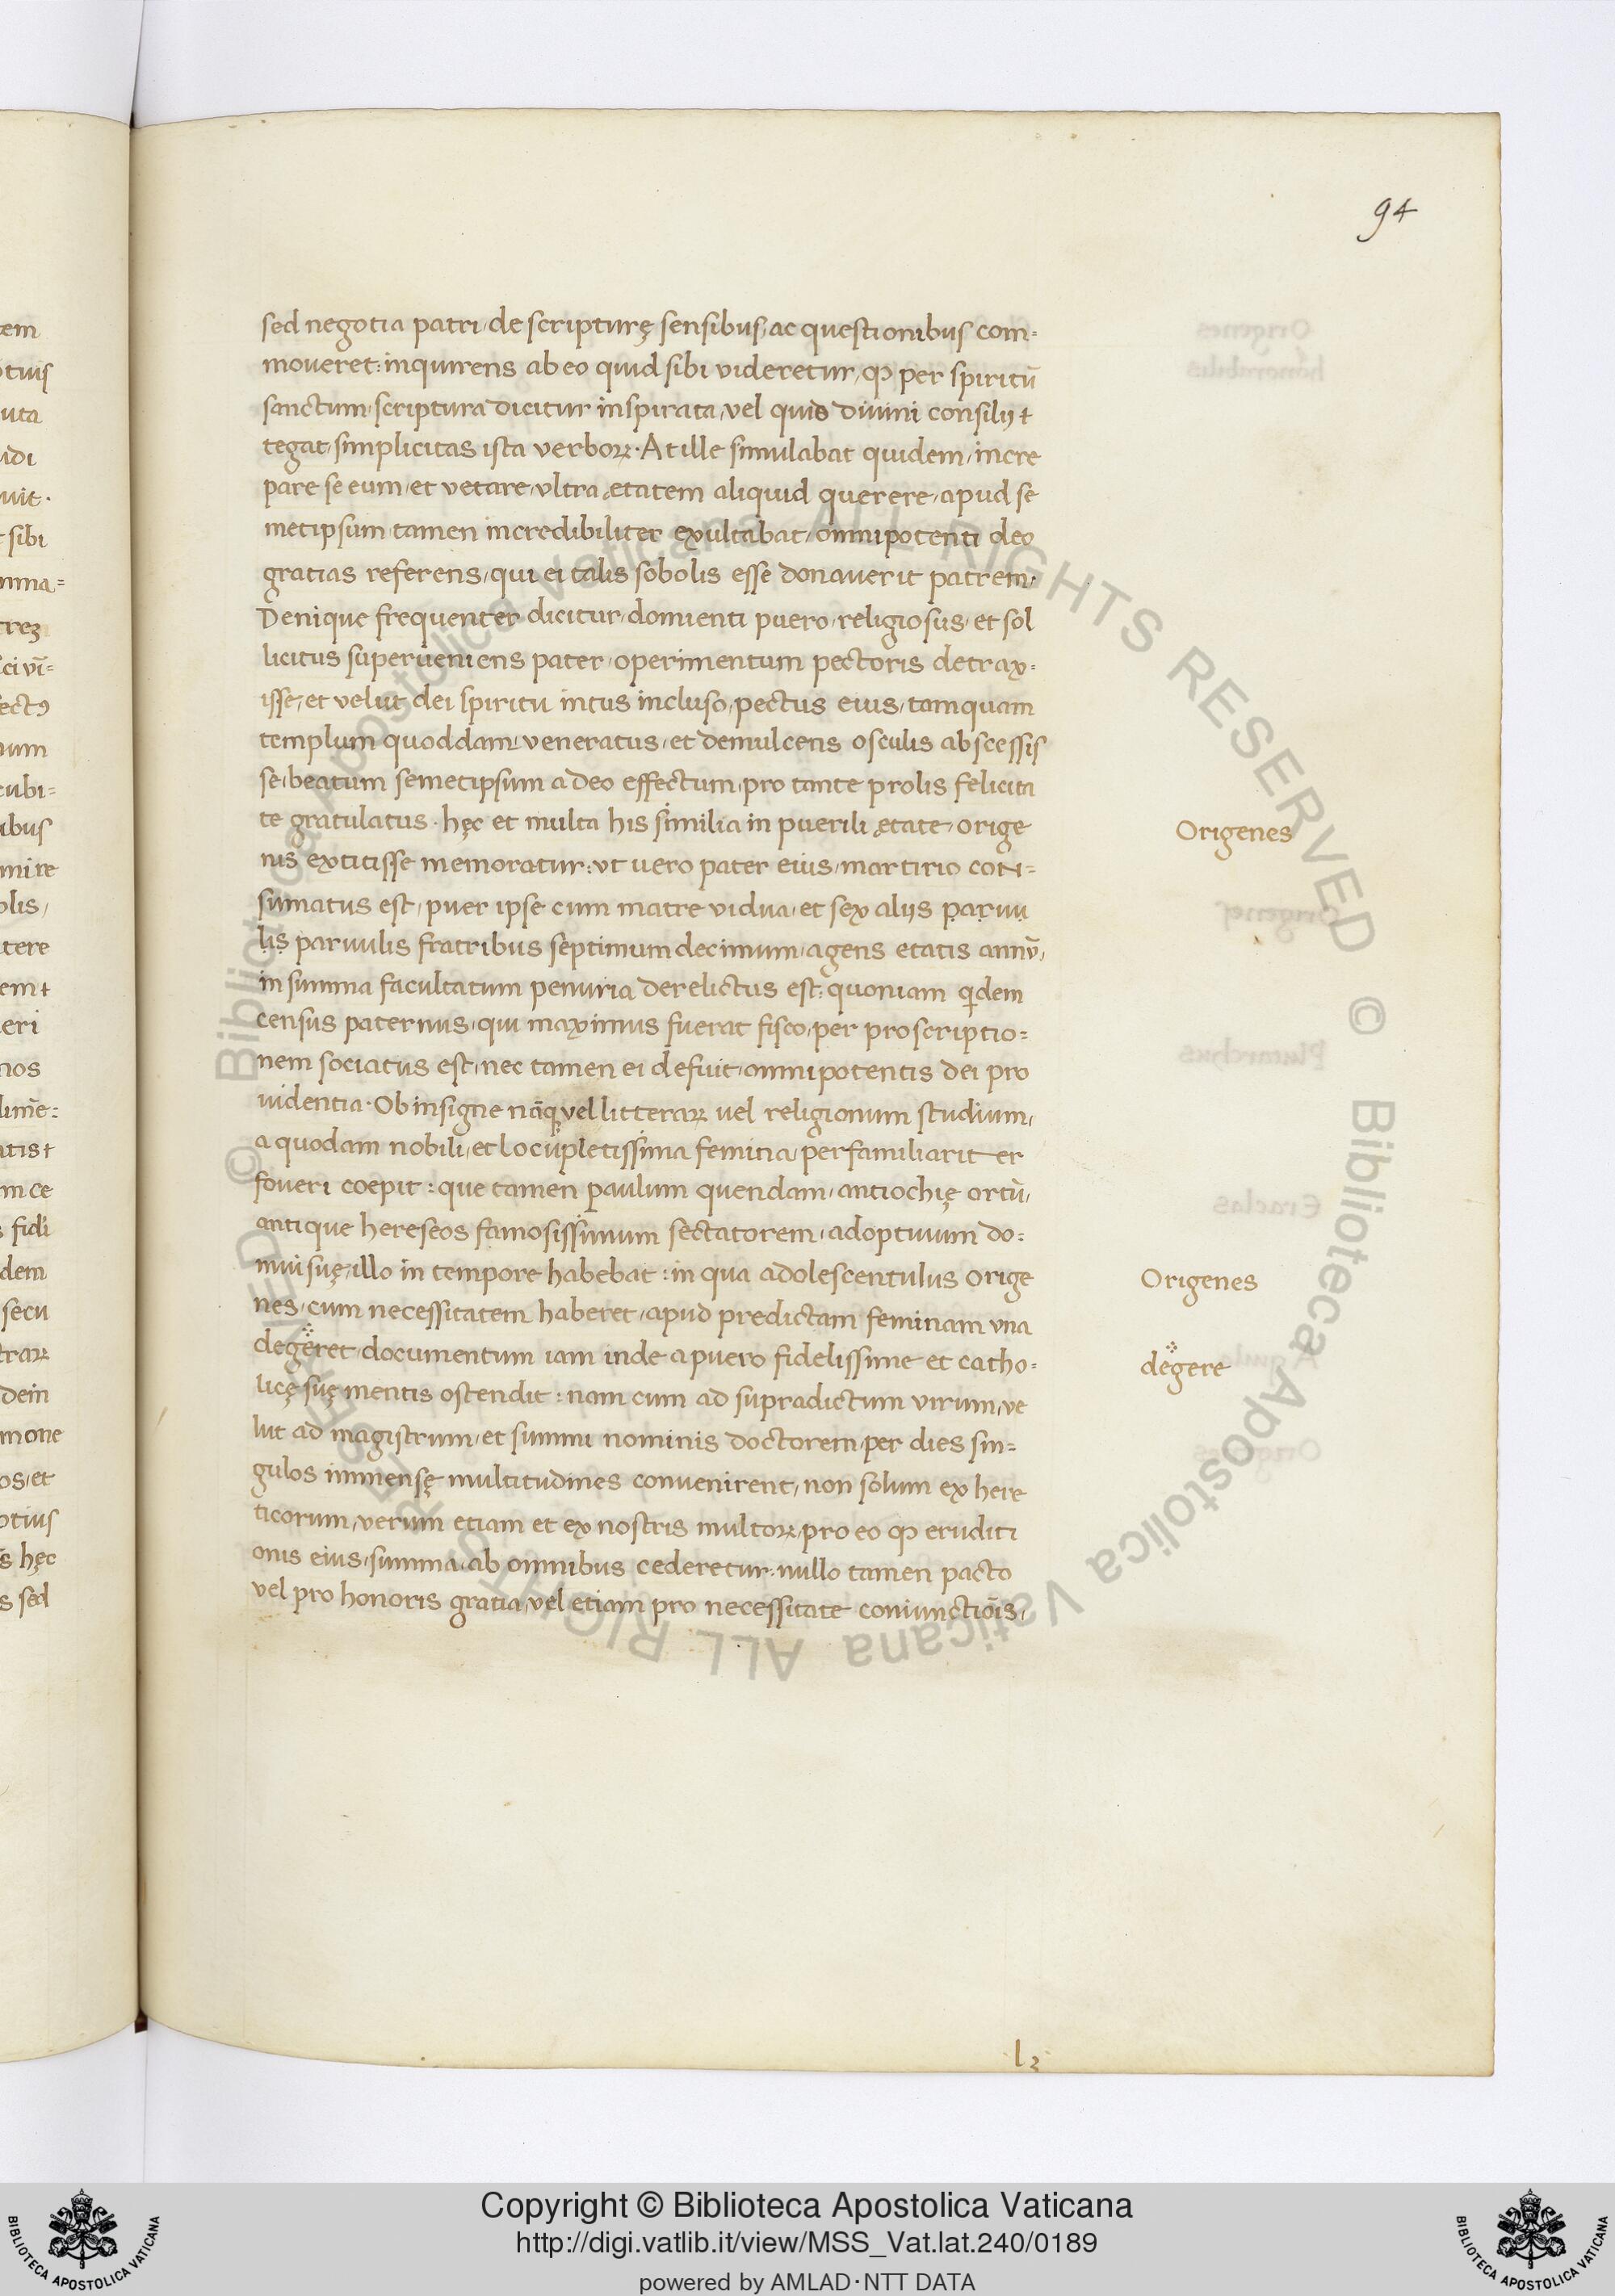 94
sed negotia patri, de scripturę sensibus, ac questionibus com-
moueret: inquirens ab eo quid sibi videretur, ꝙ per spiritū
sanctum, scriptura dicitur inspirata, vel quid diuini consilij ꝯ
tegat, simplicitas ista verboꝝ. At ille simulabat quidem, incre
pare se eum, et vetare, vltra ętatem aliquid querere, apud se
metipsum, tamen incredibiliter exultabat, omnipotenti deo
gratias referens, qui ei talis sobolis esse donauerit patrem.
Denique frequenter dicitur, domienti puero, religiosus, et sol
licitus superueniens pater, operimentum pectoris detrax-
isse, et velut dei spiritu intus incluso, pectus eius, tamquam
templum quoddam, veneratus, et demulcens osculis abscessis
se, beatum semetipsum a deo effectum, pro tante prolis felicita
te gratulatus. hęc et multa his similia in puerili ętate, orige
nis extitisse memoratur: vt uero pater eius, martirio con-
sumatus est, puer ipse cum matre vidua, et sex alijs paruu
lis paruulis fratribus septimum decimum, agens etatis annū,
in summa facultatum penuria derelictus est: quoniam qͥdem
census paternus, qui maximus fuerat fisco, per proscriptio-
nem sociatus est, nec tamen ei defuit, omnipotentis dei pro
uidentia. Ob insigne nāqꝫ vel litteraꝝ uel religionum studium,
a quodam nobili, et locupletissima femina, perfamiliariter
foueri coepit: que tamen paulum quendam, antiochię ortū,
antique hereseos famosissimum sectatorem, adoptiuum do-
mui suę, illo in tempore habebat: in qua adolescentulus orige
nes, cum necessitatem haberet, apud predictam feminam vna
degeret, documentum iam inde a puero fidelissime et catho-
licę suę mentis ostendit: nam cum ad supradictum virum, ve
lut ad magistrum, et summi nominis doctorem, per dies sin-
gulos immensę multitudines conuenirent, non solum ex here
ticorum, verum etiam et ex nostris multoꝝ, pro eo ꝙ eruditi
onis eius, summa, ab omnibus cederetur: nullo tamen pacto
vel pro honoris gratia, vel etiam pro necessitate coniunctiōis,
Origenes
Origenes
degere
l2
Copyright © Biblioteca Apostolica Vaticana
http://digi.vatlib.it/view/MSS_Vat.lat.240/0189
powered by AMLAD·NTT DATA
BIBLIOTECA APOSTOLICA VATICANA
BIBLIOTECA APOSTOLICA VATICANA
© Biblioteca Apostolica Vaticana ALL RIGHTS RESERVED
© Biblioteca Apostolica Vaticana ALL RIGHTS RESERVED